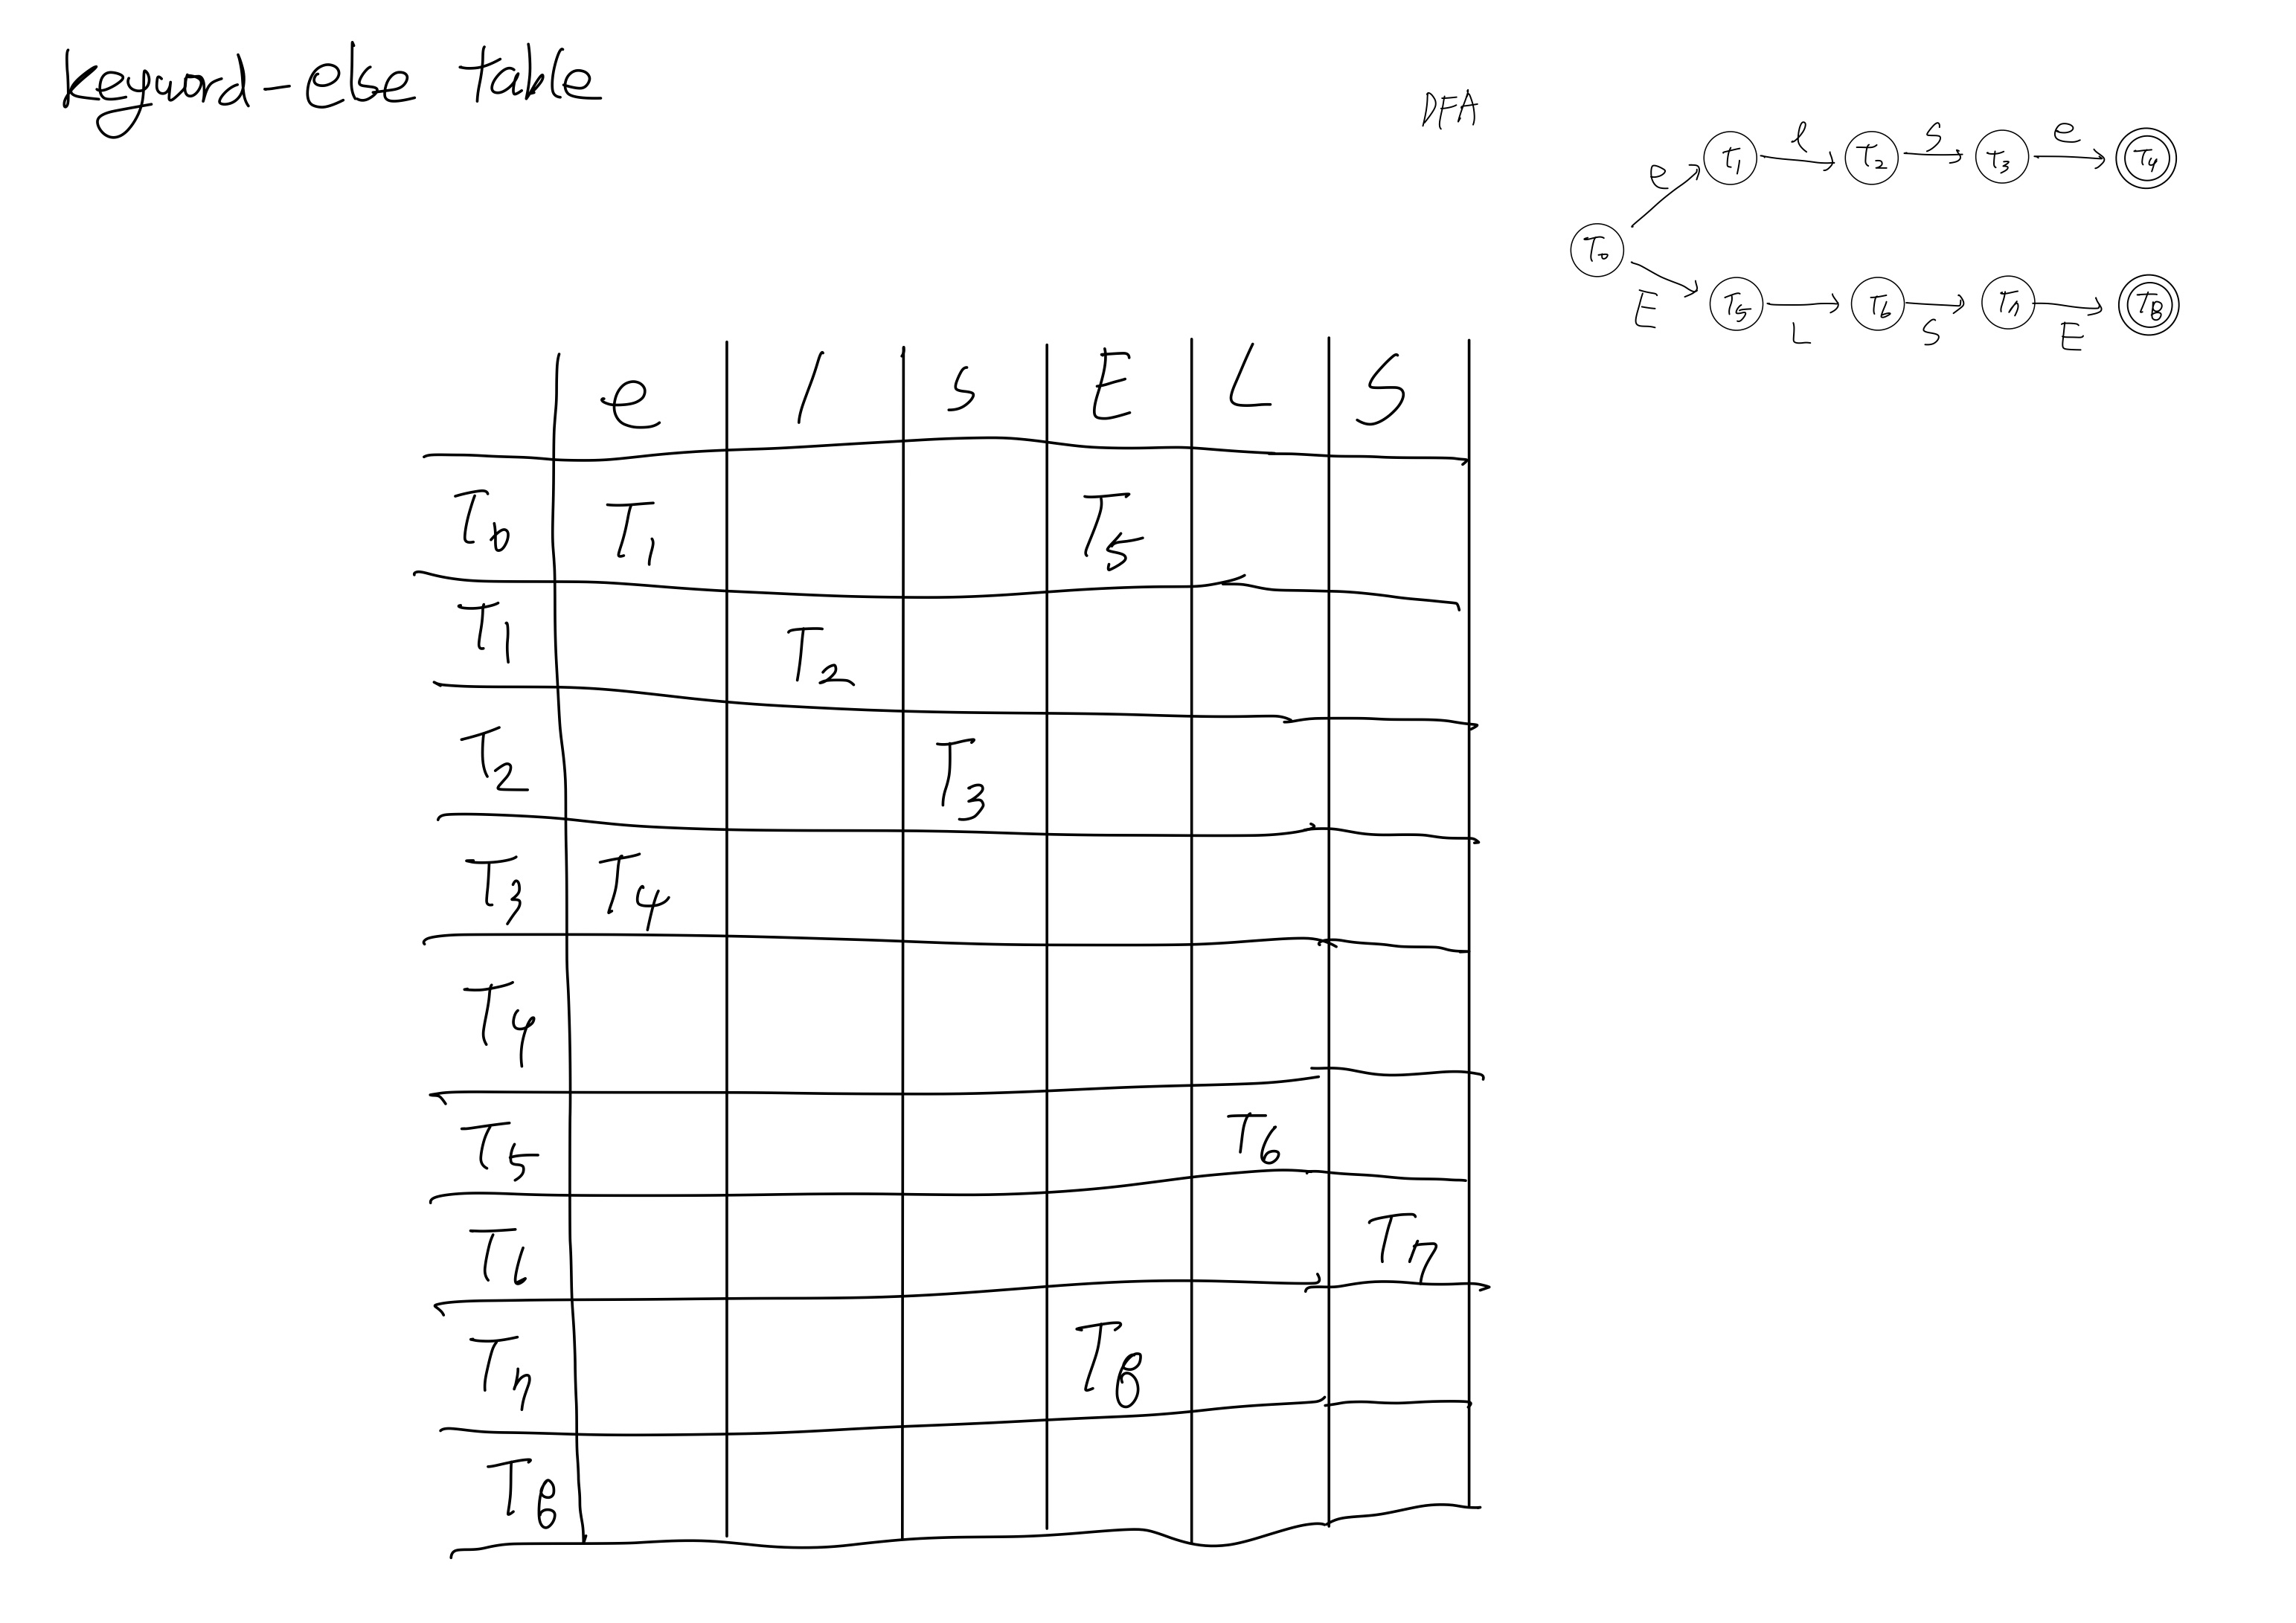 keyword-else table
DFA
e l s e
T1 T2 T3 T4
T0
T5 T6 T7 T8
E L S E
e l s E L S
T0 T1 T5
T1 T2
T2 T3
T3 T4
T4
T5 T6
T6 T7
T7 T8
T8